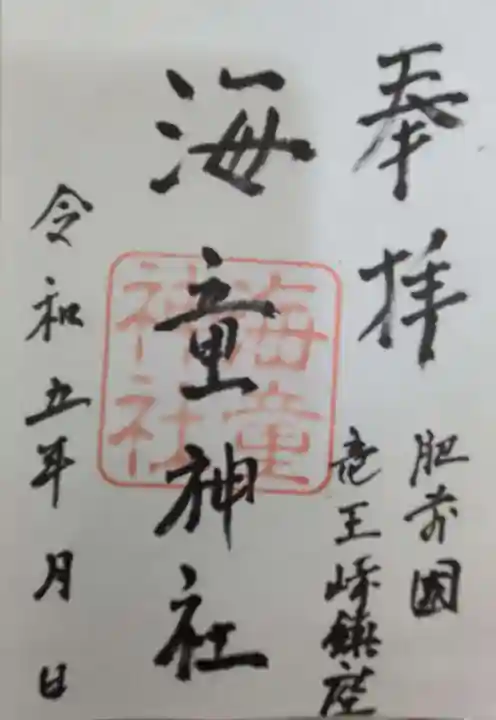 奉拝
肥前國
竜王崎鎮座
海童神社
海童
神社
令和五年 月 日